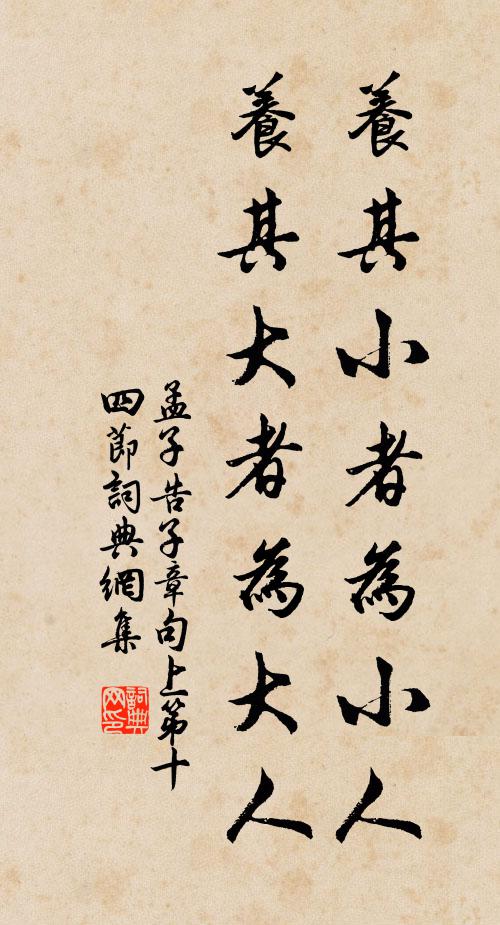 養其小者為小人
養其大者為大人
孟子告子章句上第十
四節詞典網集
詞典
网印